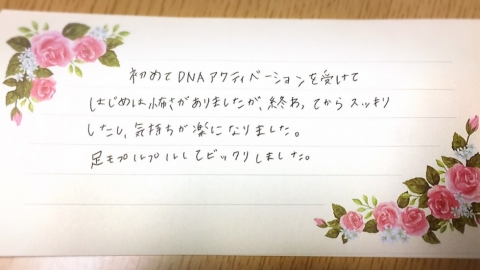 初めてDNAアクティベーションを受けて
はじめは怖さがありましたが、終わってからスッキリ
したし、気持ちが楽になりました。
足もプルプルしてビックリしました。